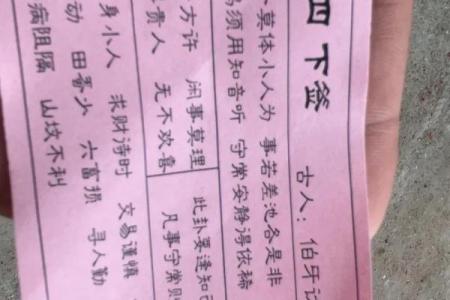 四 下签 古人：伯牙访
莫体小人为 事若差池各是非
须用知音听 守常安静得依稀
方许 闲事莫理
贵人 无不欢喜
此卦要逢知己
凡事守常则
身小人 求财待时 交易谨慎
动 田蚕少 六畜损 寻人勤
病阻隔 山坟不利